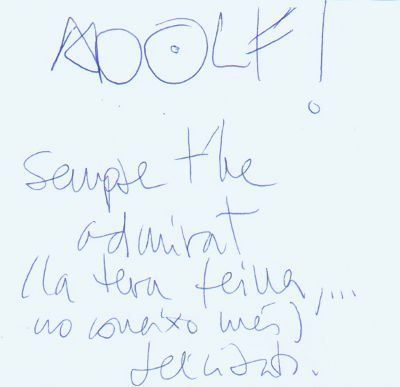 ADOLF!
sempre t'he
admirat
(la teva feina,...
no coneixo més)
felicitats.